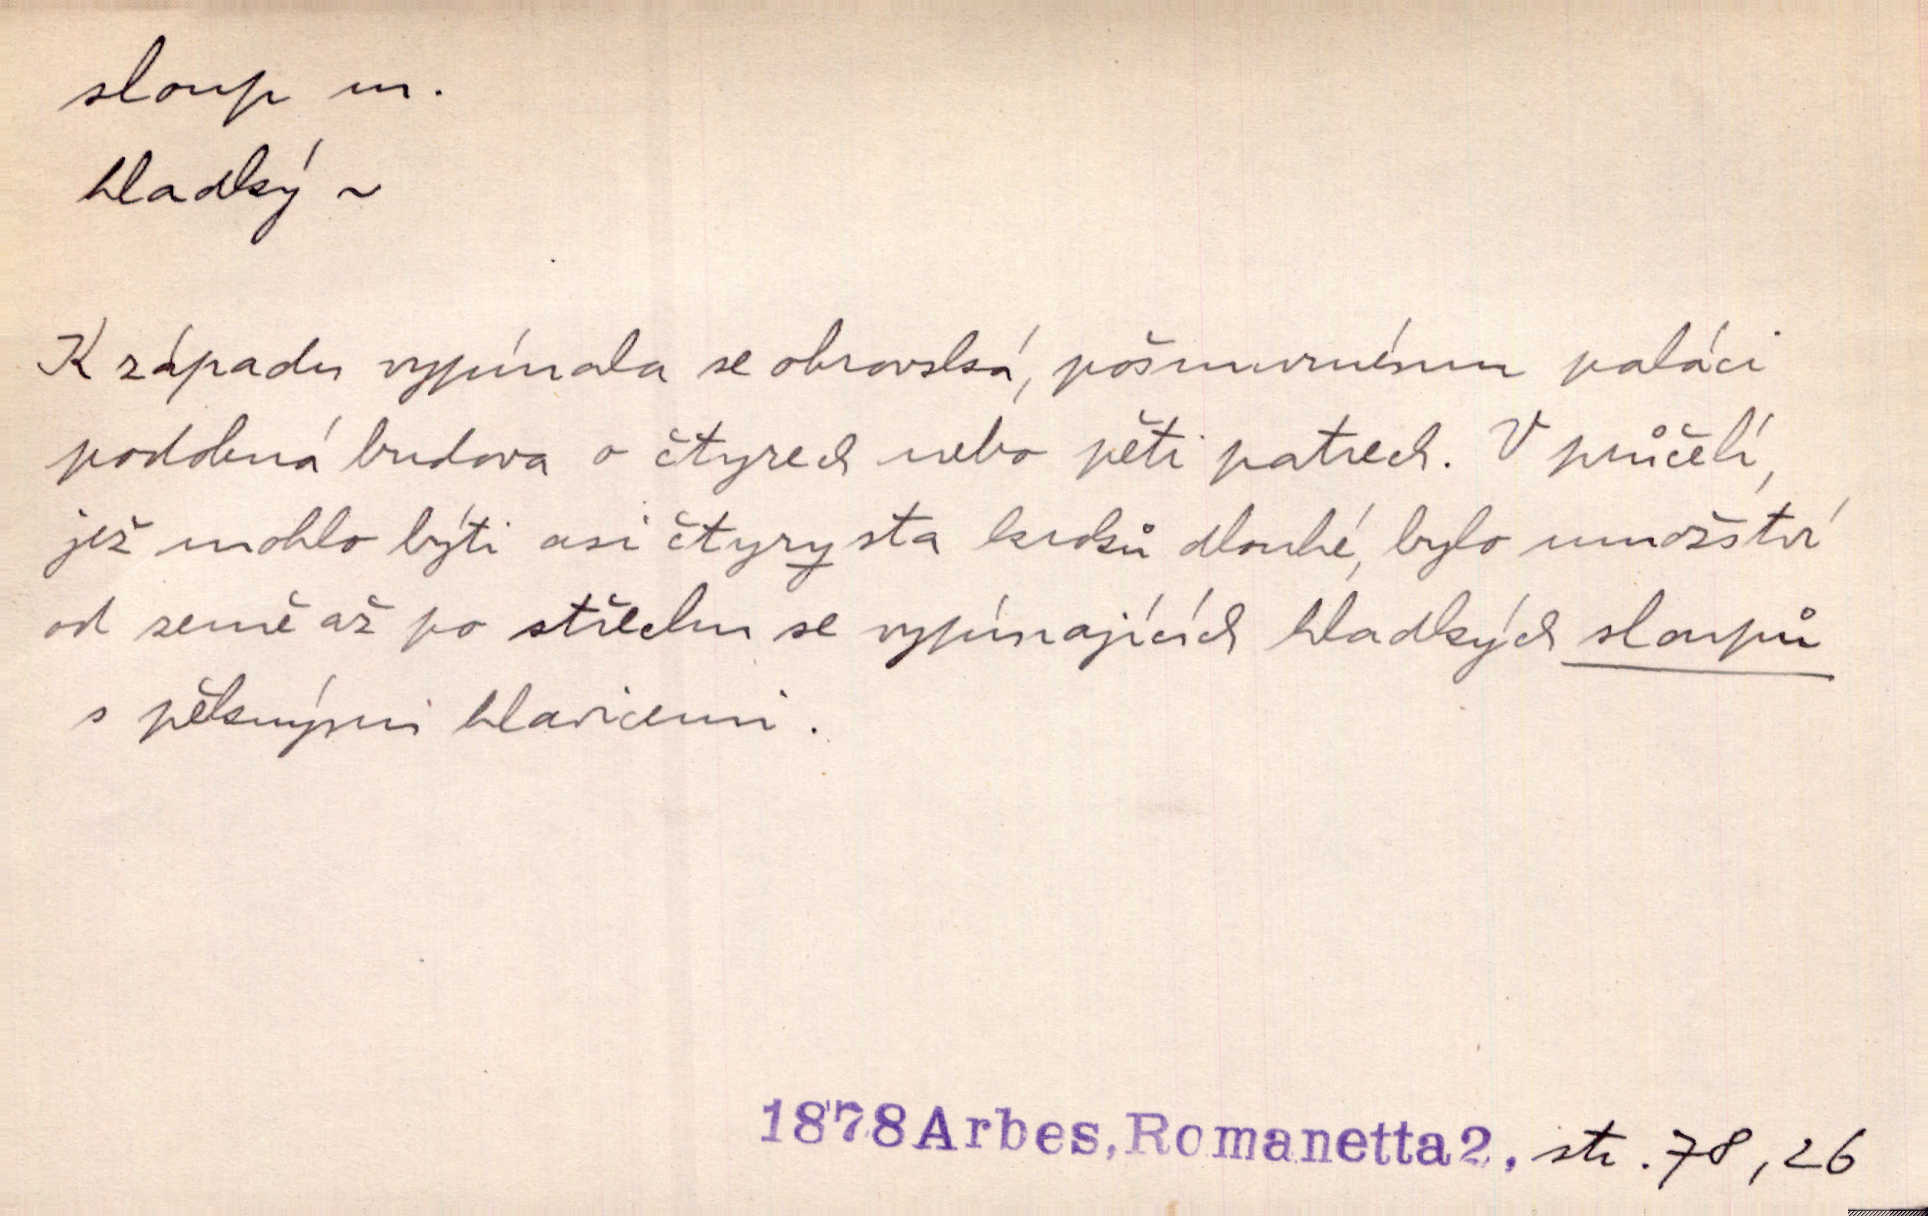 sloup m.
hladký ~
K západu vypínala se obrovská, pošmurnému paláci
podobná budova o čtyrech nebo pěti patrech. V průčelí,
jež mohlo býti asi čtyrysta kroků dlouhé, bylo množství
od země až po střechu se vypínajících hladkých sloupů
s pěknými hlavicemi.
1878 Arbes, Romanetta 2, str. 78, 26